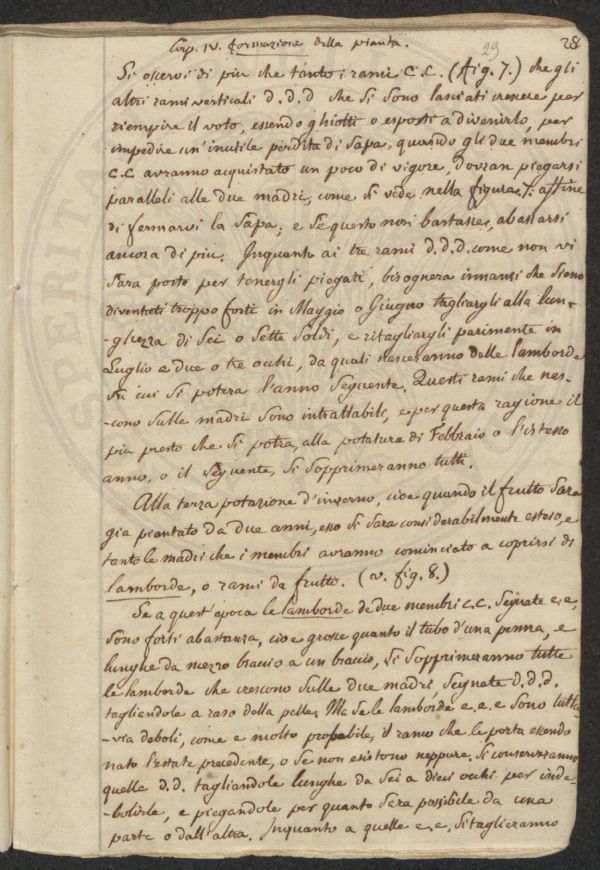 Cap. IV. formazione della pianta. 29 28
Si osservi di piu che tanto i rami C.C. (fig. 7.) che gli
altri rami verticali d.d.d che si sono lasciati crescere per
riempire il voto, essendo ghiotti o esposti a divenirlo, per
impedire un'inutile perdita di Sapa, quando gli due membri
C.C avranno acquistato un poco di vigore, dovran piegarsi
paralleli alle due madri, come si vede nella figura 7. affine
di fermarvi la Sapa; e se questo non bastasse, abassarsi
ancora di piu. Inquanto ai tre rami d.d.d. come non vi
sara posto per tenergli piegati, bisognera innanzi che siono
diventati troppo forti in Maggio o Giugno tagliargli alla lun-
-ghezza di Sei o Sette Soldi, e ritagliargli parimente in
Luglio a due o tre occhi, da quali nasceranno delle lamborde
su cui si potera l'anno seguente. Questi rami che nas-
-cono sulle madri sono intrattabili, e per questa ragione il
piu presto che si potra, alla potatura di Febbraio o l'istesso
anno, o il seguente, si sopprimeranno tutti.
Alla terza potazione d'inverno, cioe quando il frutto sara
gia piantato da due anni, esso si sara considerabilmente esteso, e
tanto le madri che i membri avranno cominciato a coprirsi di
lamborde, o rami da frutto. (v. fig. 8.)
Se a quest'epoca le lamborde de due membri C.C. segnate e.e,
sono forti abastanza, cioe grosse quanto il tubo d'una penna, e
lunghe da mezzo braccio a un braccio, si sopprimeranno tutte
le lamborde che crescono sulle due madri, segnate d.d.d.
tagliandole a raso della pelle. Ma se le lamborde e.e.e sono tutta-
-via deboli, come e molto probabile, il ramo che le porta essendo
nato l'estate precedente, o se non esistono neppure, si conserveranno
quelle d.d. tagliandole lunghe da sei a dieci occhi per inde-
-bolirle, e piegandole per quanto sera possibile da una
parte o dall'altra. Inquanto a quelle e.e, si taglieranno